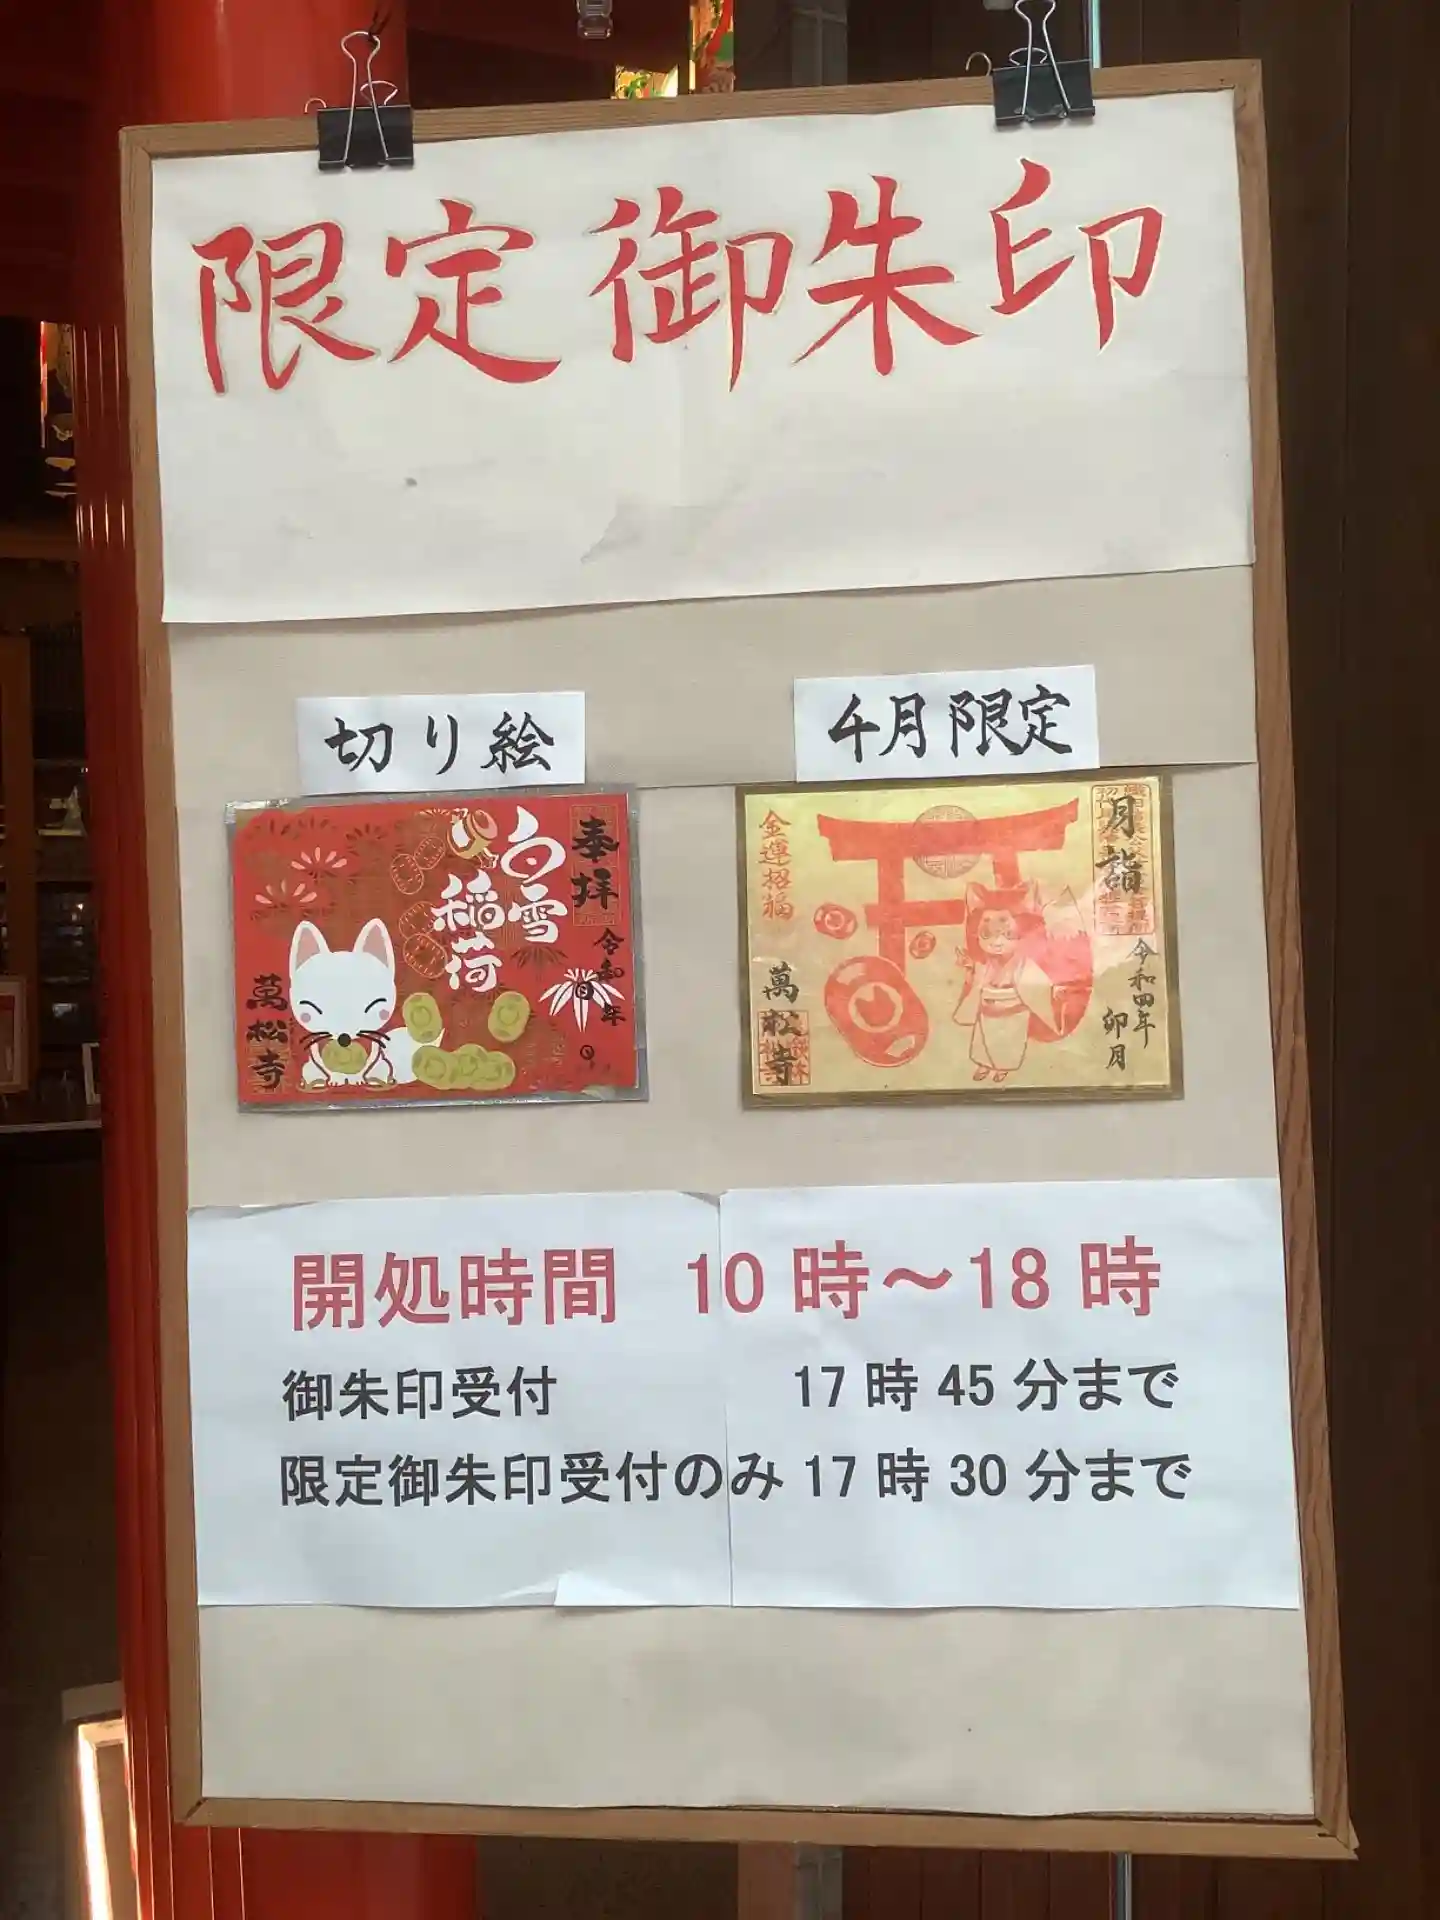 限定御朱印
切り絵
4月限定
奉拝
白雪
稲荷
令和 年
月 日
萬松寺
月詣
金運招福
令和四年
卯月
萬松寺
開処時間 10時～18時
御朱印受付 17時45分まで
限定御朱印受付のみ17時30分まで